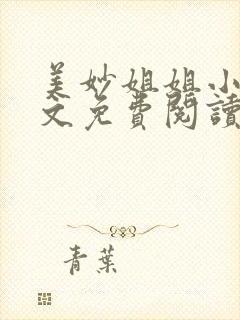 美妙姐姐小
文免費閱讀
青葉